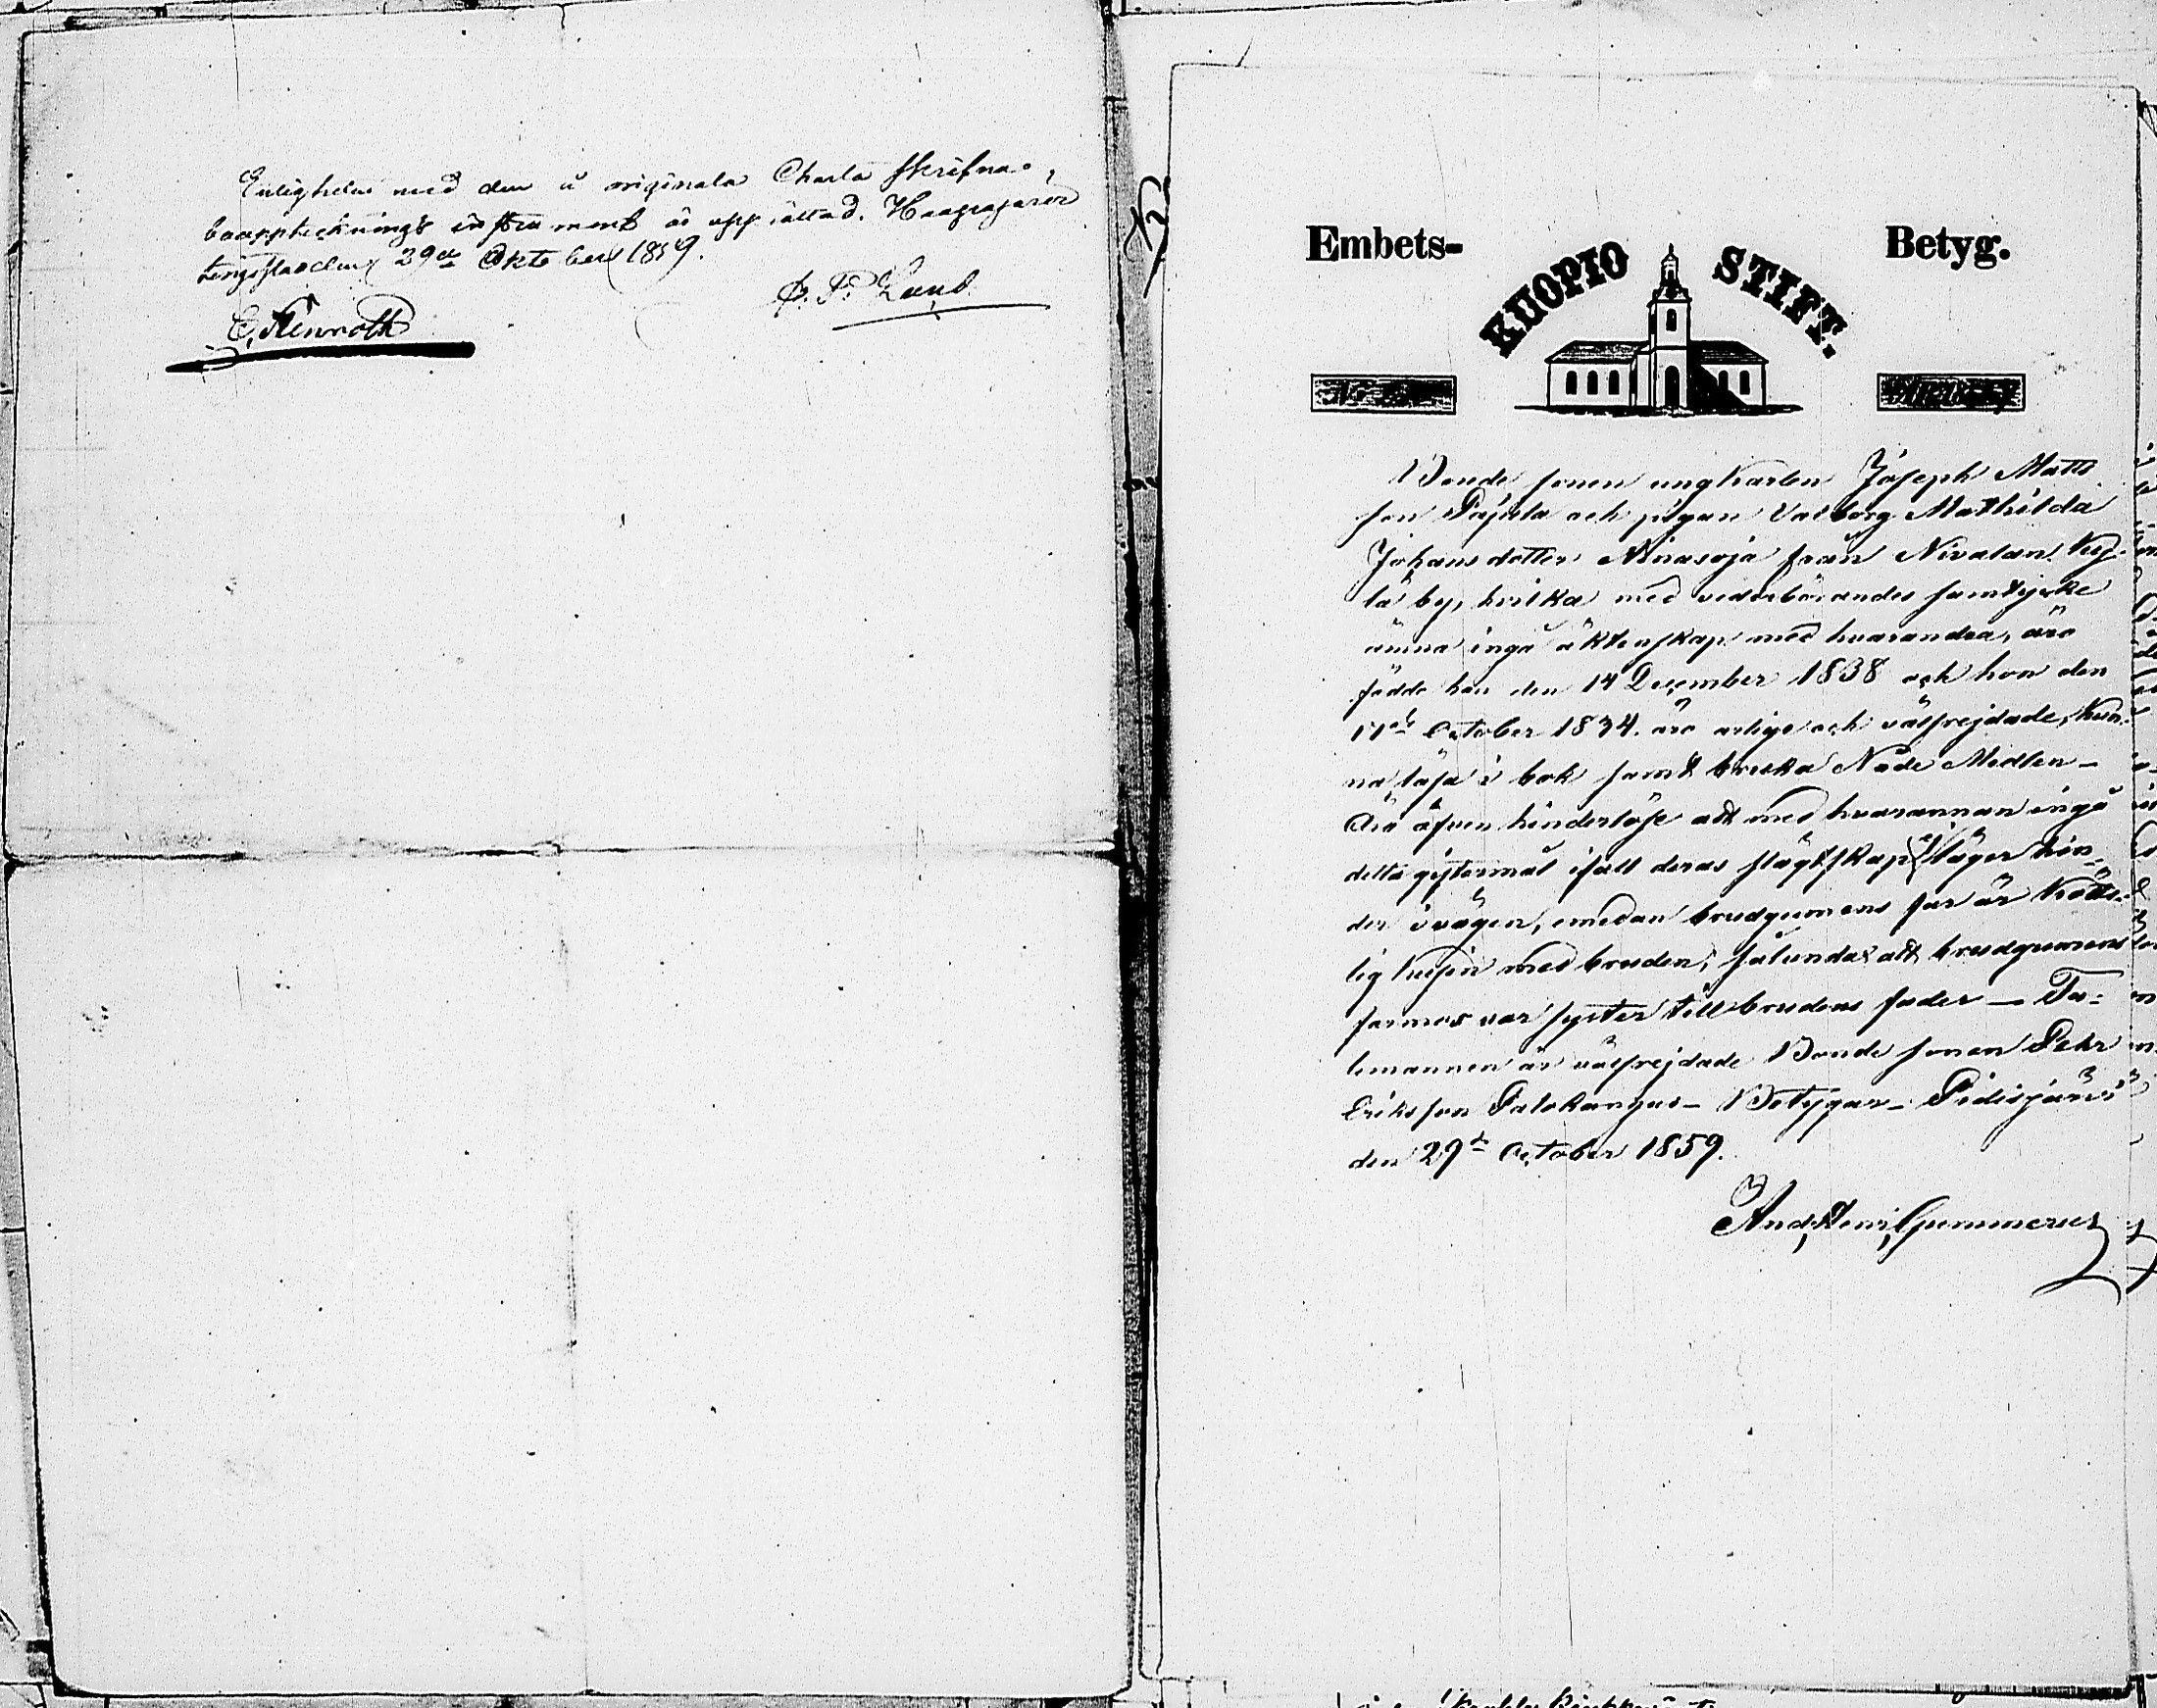 Enligheten med den å originala Charta skrifna
bouppteknings instrument är upprättad. Haapajärvi
tingsstaden 29de Oktober 1859.
C. Stenroth
Embets-
KUOPIO STIFT.
Betyg.
Bonde sonen ungkarlen Joseph Matts
son Pajula och pigan Valborg Mathilda
Johansdotter Niinasoja från Nivalan Ky-
lä by, hvilka med vederbörandes samtycke
ämna ingå äktenskap med hvarandra, äro
födde han den 14 December 1838 och hon den
17de October 1834. äro ärlige och välfrejdade, kun-
na läsa i bok samt bruka Nåde Medlen -
Äro äfven hinderlöse att med hvarannan ingå
detta giftermål ifall deras slägtskap ej läger hin-
der i vägen, emedan brudgumens far är Kötts-
lig kusin med bruden, sålunda att brudgumens
farmor var syster till brudens fader — Ta-
lemannen är välfrejdade Bonde sonen Pehr
Eriksson Palokangas - Betygar - Pidisjärvi
den 29de October 1859.
And. Henr. Gummerus